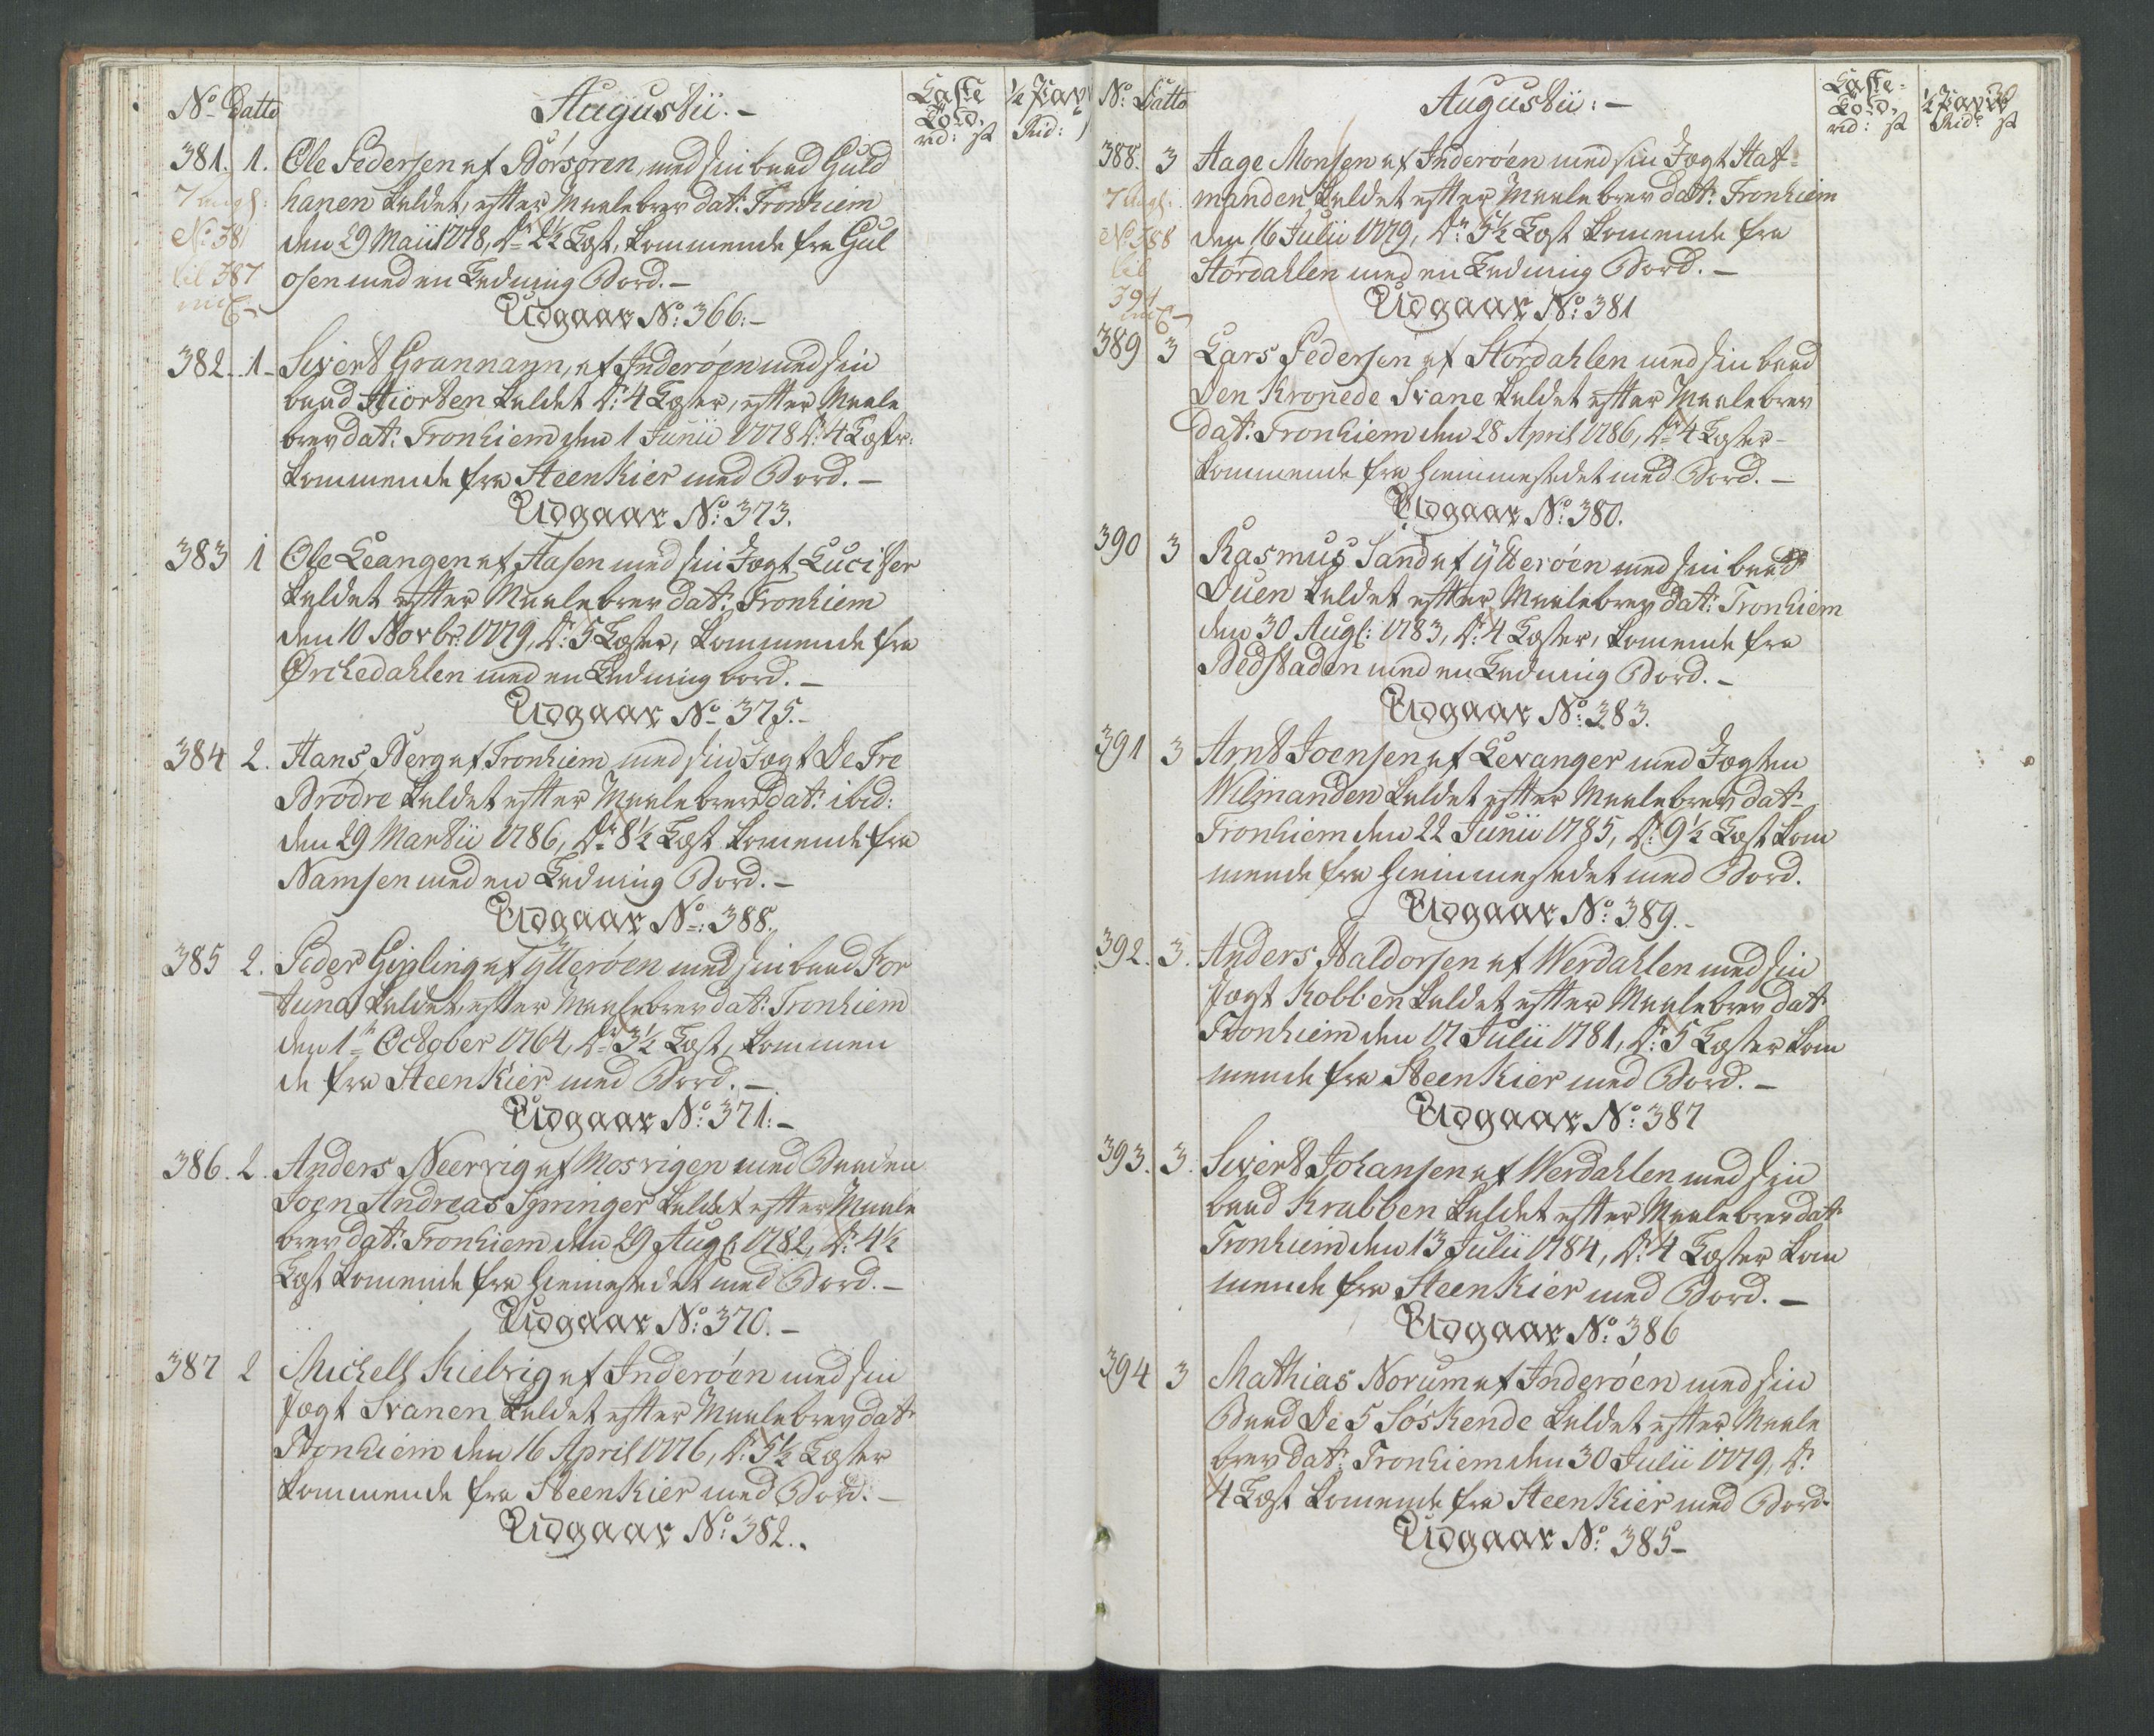 No Datto Augustii.- Læste Told. rd: st ½ Par Rid:
381. 1. Ole Pedersen af Börsören, med sin baad Guld
7 Aug: hanen kaldet, efter Maalebrev dat: Tronhiem
No: 381 den 29 Maii 1778, Dr: 2½ Læst, kommende fra Gul
til 387 osen med en Ladning Bord.-
Udgaar No: 366:-
382. 1. Sivert Grannann, af Inderöen med sin
baad Hiorten kaldet Dr: 4 Læster, efter Maale
brev dat: Tronhiem den 1 Junii 1778 Dr: 4 Læstr:
kommende fra Steenkier med Bord.-
Udgaar No: 373.
383 1 Ole Leangen af Aasen med sin Jægt Lucifser
kaldet efter Maalebrev dat: Tronhiem
den 10 Novbr: 1779, Dr: 5 Læster, kommende fra
Örchedahlen med en Ladning bord.-
Udgaar No 375.-
384 2. Hans Berg af Tronhiem med sin Jægt De Tre
Brödre kaldet efter Maalebrev dat: ibid:
den 29 Martii 1786, Dr: 8½ Læst komende fra
Namsen med en Ladning Bord.-
Udgaar No: 388.
385 2. Peder Gipling af Ytteröen med sin baad For
tuna kaldet, efter Maalebrev dat: Tronhiem
den 1te October 1764, Dr: 3½ Læst, kommen
de fra Steenkier med Bord.-
Udgaar No: 371:-
386. 2. Anders Neervig af Mosvigen med Baaden
Joen Andreas Springer kaldet efter Maale
brev dat: Tronhiem den 29 Aug: 1782, Dr: 4½
Læst komende fra Hiemestedet med Bord.-
Udgaar No: 370.-
387 2 Michell Kielvig af Inderöen med sin
Jægt Svanen kaldet efter Maalebrev dat:
Tronhiem den 16 April 1776, Dr: 5½ Læster
kommende fra Steenkier med Bord.-
Udgaar No: 382..
No: Datto Augustii:- Læste- Told. rd: st ½ Par Rid: st
388. 3 Aage Monsen af Inderöen med sin Jægt Hat-
7 Aug: manden kaldet efter Maalebrev dat: Tronhiem
No: 388 den 16 Julii 1779, Dr: 5½ Læst komende fra
til Stördahlen med en Ladning Bord.-
394 Udgaar No: 381
389 3 Lars Pedersen af Stördahlen med sin baad
Den Kronede Svane kaldet efter Maalebrev
dat: Tronhiem den 28 April 1786, Dr: 4 Læster-
kommende fra Hiemmestedet med Bord.-
Udgaar No: 380.
390 3 Rasmus Sand af Ytteröen med sin baad
Duen kaldet efter Maalebrev dat: Tronhiem
den 30 Aug: 1783, Dr: 4 Læster, komende fra
Bedstaden med en Ladning Bord.-
Udgaar No: 383.
391 3 Arnt Joensen af Levanger med Jægten
Wilmanden kaldet efter Maalebrev dat:
Tronhiem den 22 Junii 1785, Dr: 9½ Læst kom
mende fra Hiemmestedet med Bord.
Udgaar No: 389.-
392. 3. Anders Haldorsen af Werdahlen med sin
Jægt Kobben kaldet efter Maalebrev dat
Tronhiem den 17 Julii 1781, Dr: 5 Læster kom
mende fra Steenkier med Bord.-
Udgaar No: 387
393. 3. Sivert Johansen af Werdahlen med sin
baad Krabben kaldet efter Maalebrev dat:
Tronhiem den 13 Julii 1784, Dr: 4 Læster kom
mende fra Steenkier med Bord.-
Udgaar No: 386
394 3 Mathias Norum af Inderöen med sin
Baad De 5 Söskende kaldet efter Maale
brev dat: Tronhiem den 30 Julii 1779, Dr:
4 Læst komende fra Steenkier med Bord-
Udgaar No: 385-